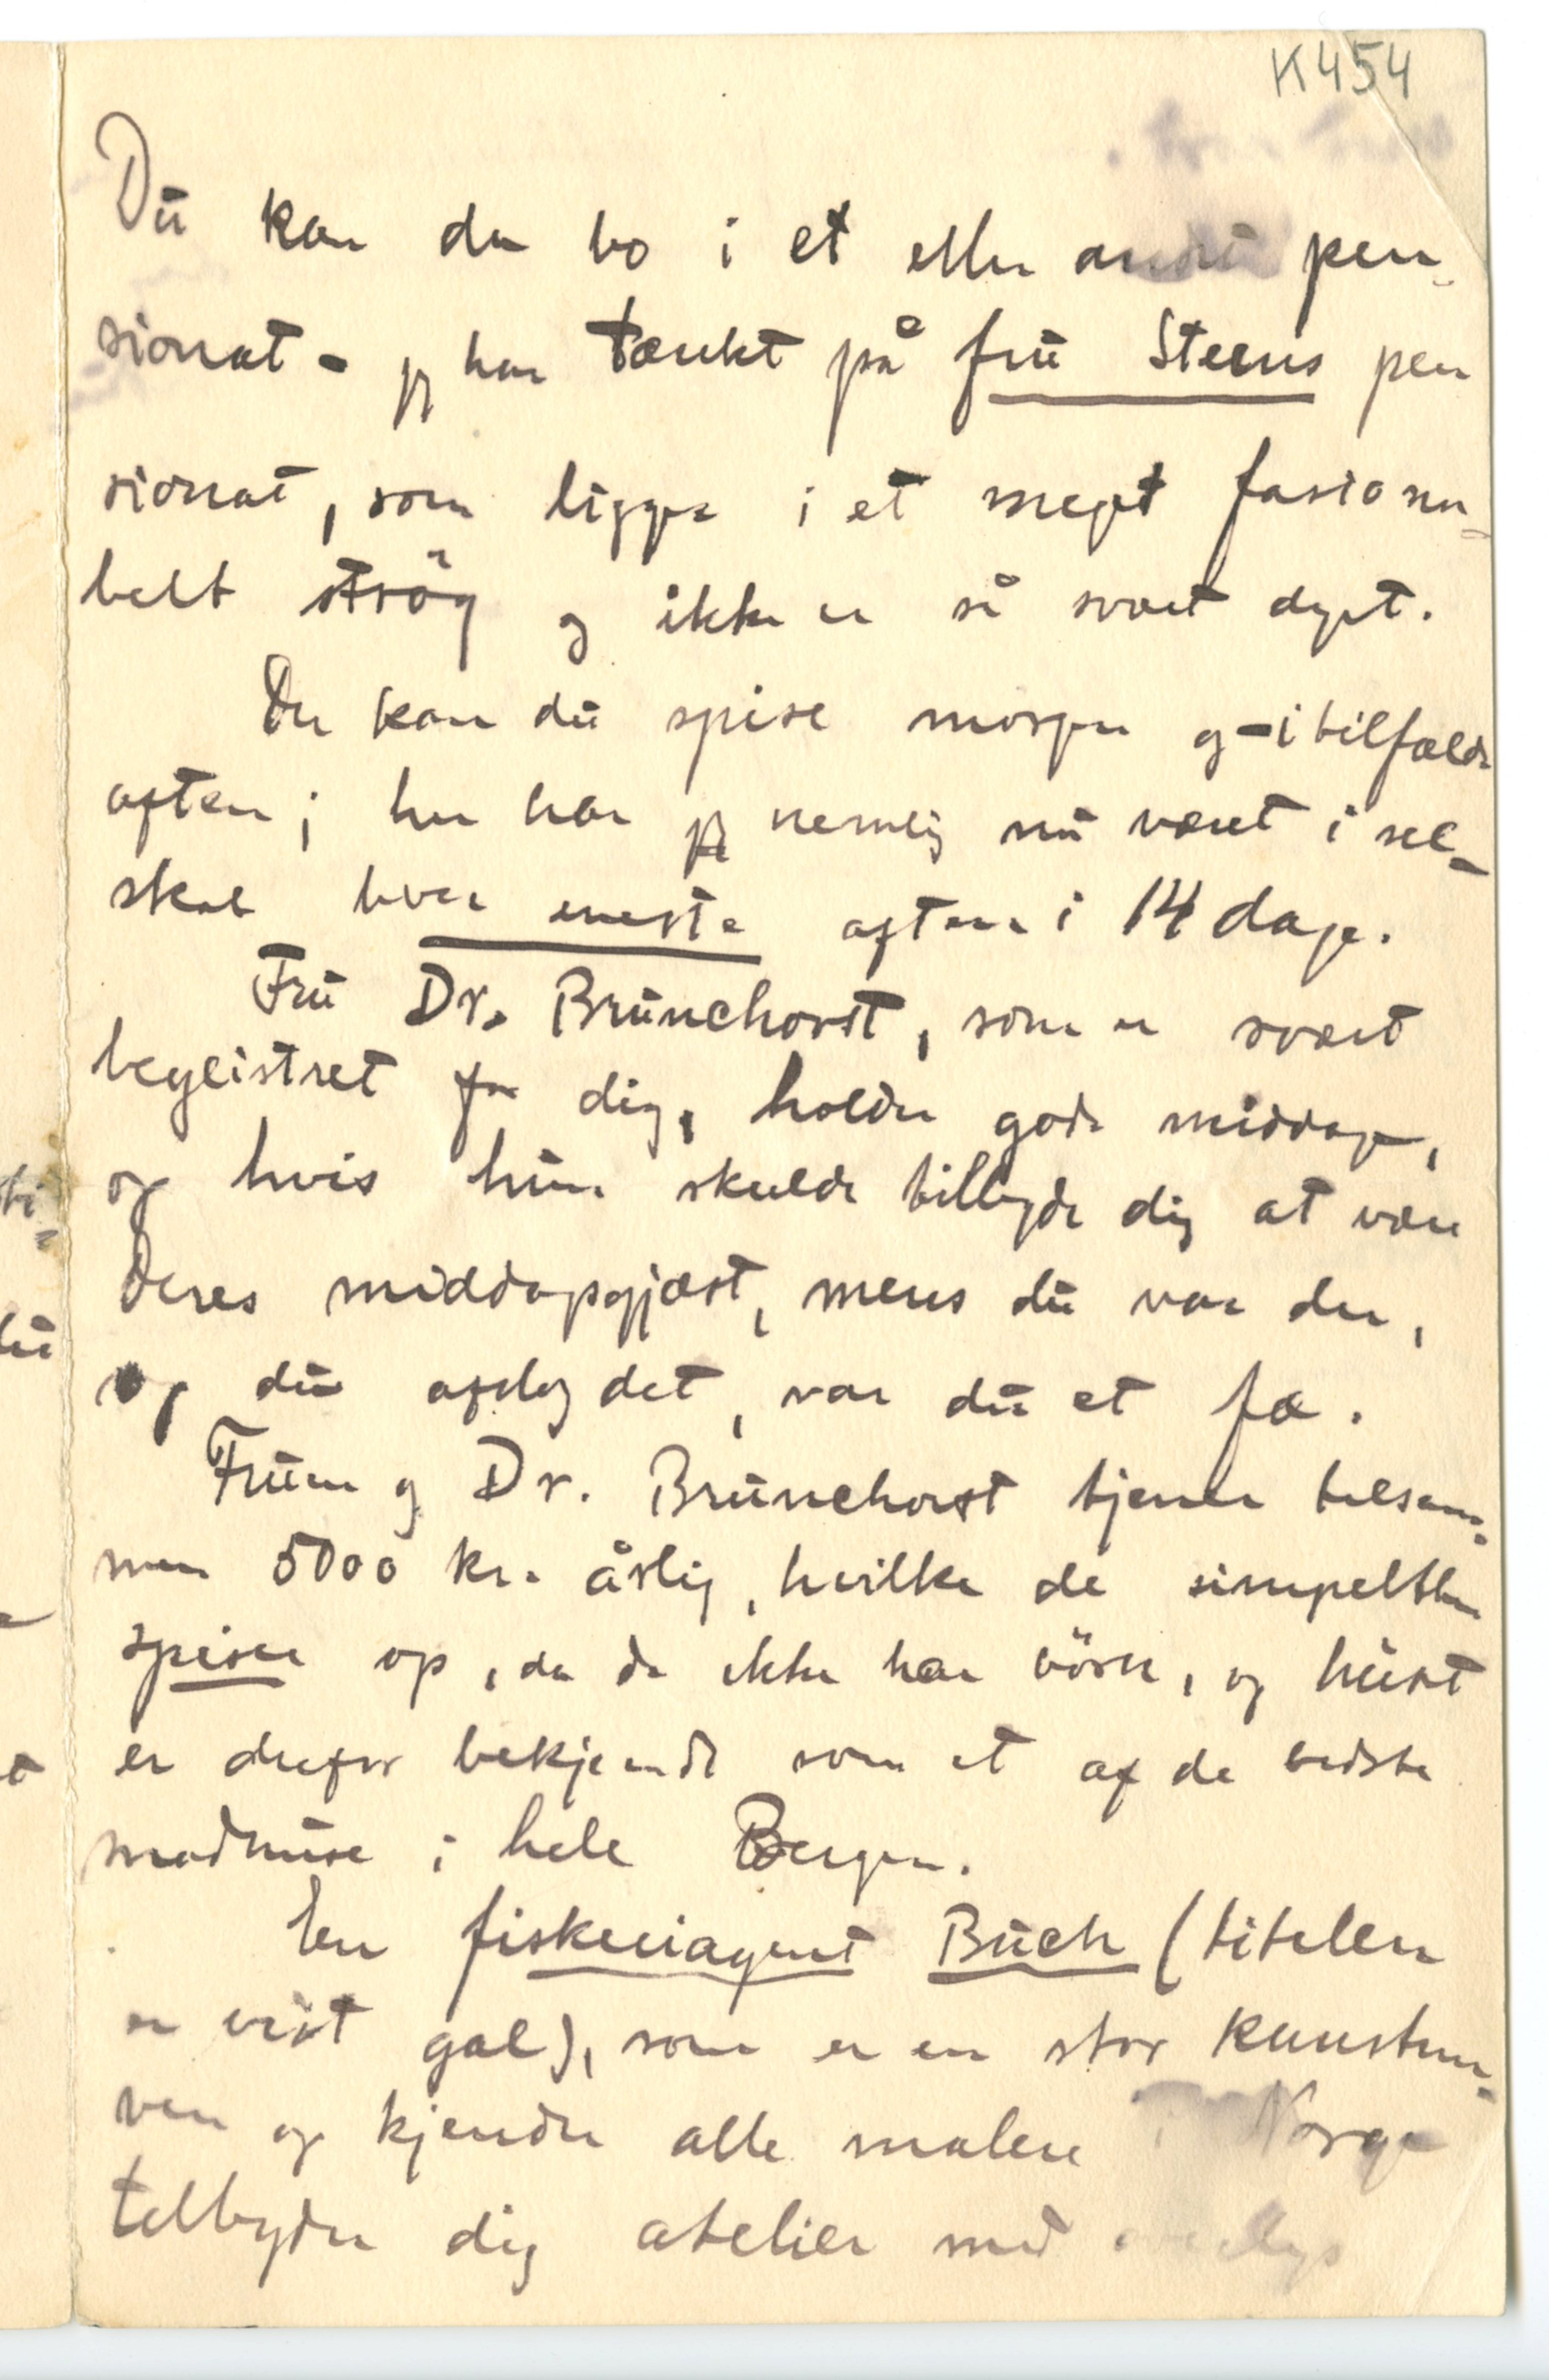 K454
Du kan da bo i et eller andet pen-
sionat - jeg har tænkt på fru Steens pen
sionat, som ligger i et meget fasiona-
belt strög og ikke er så svært dyrt.
Der kan du spise morgen og - i tilfælde
aften; her har jeg nemlig nu været i sel-
skab hver eneste aften i 14 dage.
Fru Dr. Brunchorst, som er svært
begeistret for dig, holder gode middage,
og hvis hun skulde tilbyde dig at være
Deres middagsgjæst, mens du var der,
og du afslog det, var du et fæ.
Fruen og Dr. Brunchorst tjener tilsam-
men 5000 kr. årlig, hvilke de simpelthen
spiser op, da de ikke har börn, og huset
er derfor bekjendt som et af de bedste
madhuse i hele Bergen.
En fiskeriagent Buch (titelen
er vist gal), som er en stor kunstner-
ven og kjender alle malere i Norge
tilbyder dig atelier med overlys
ti-
du